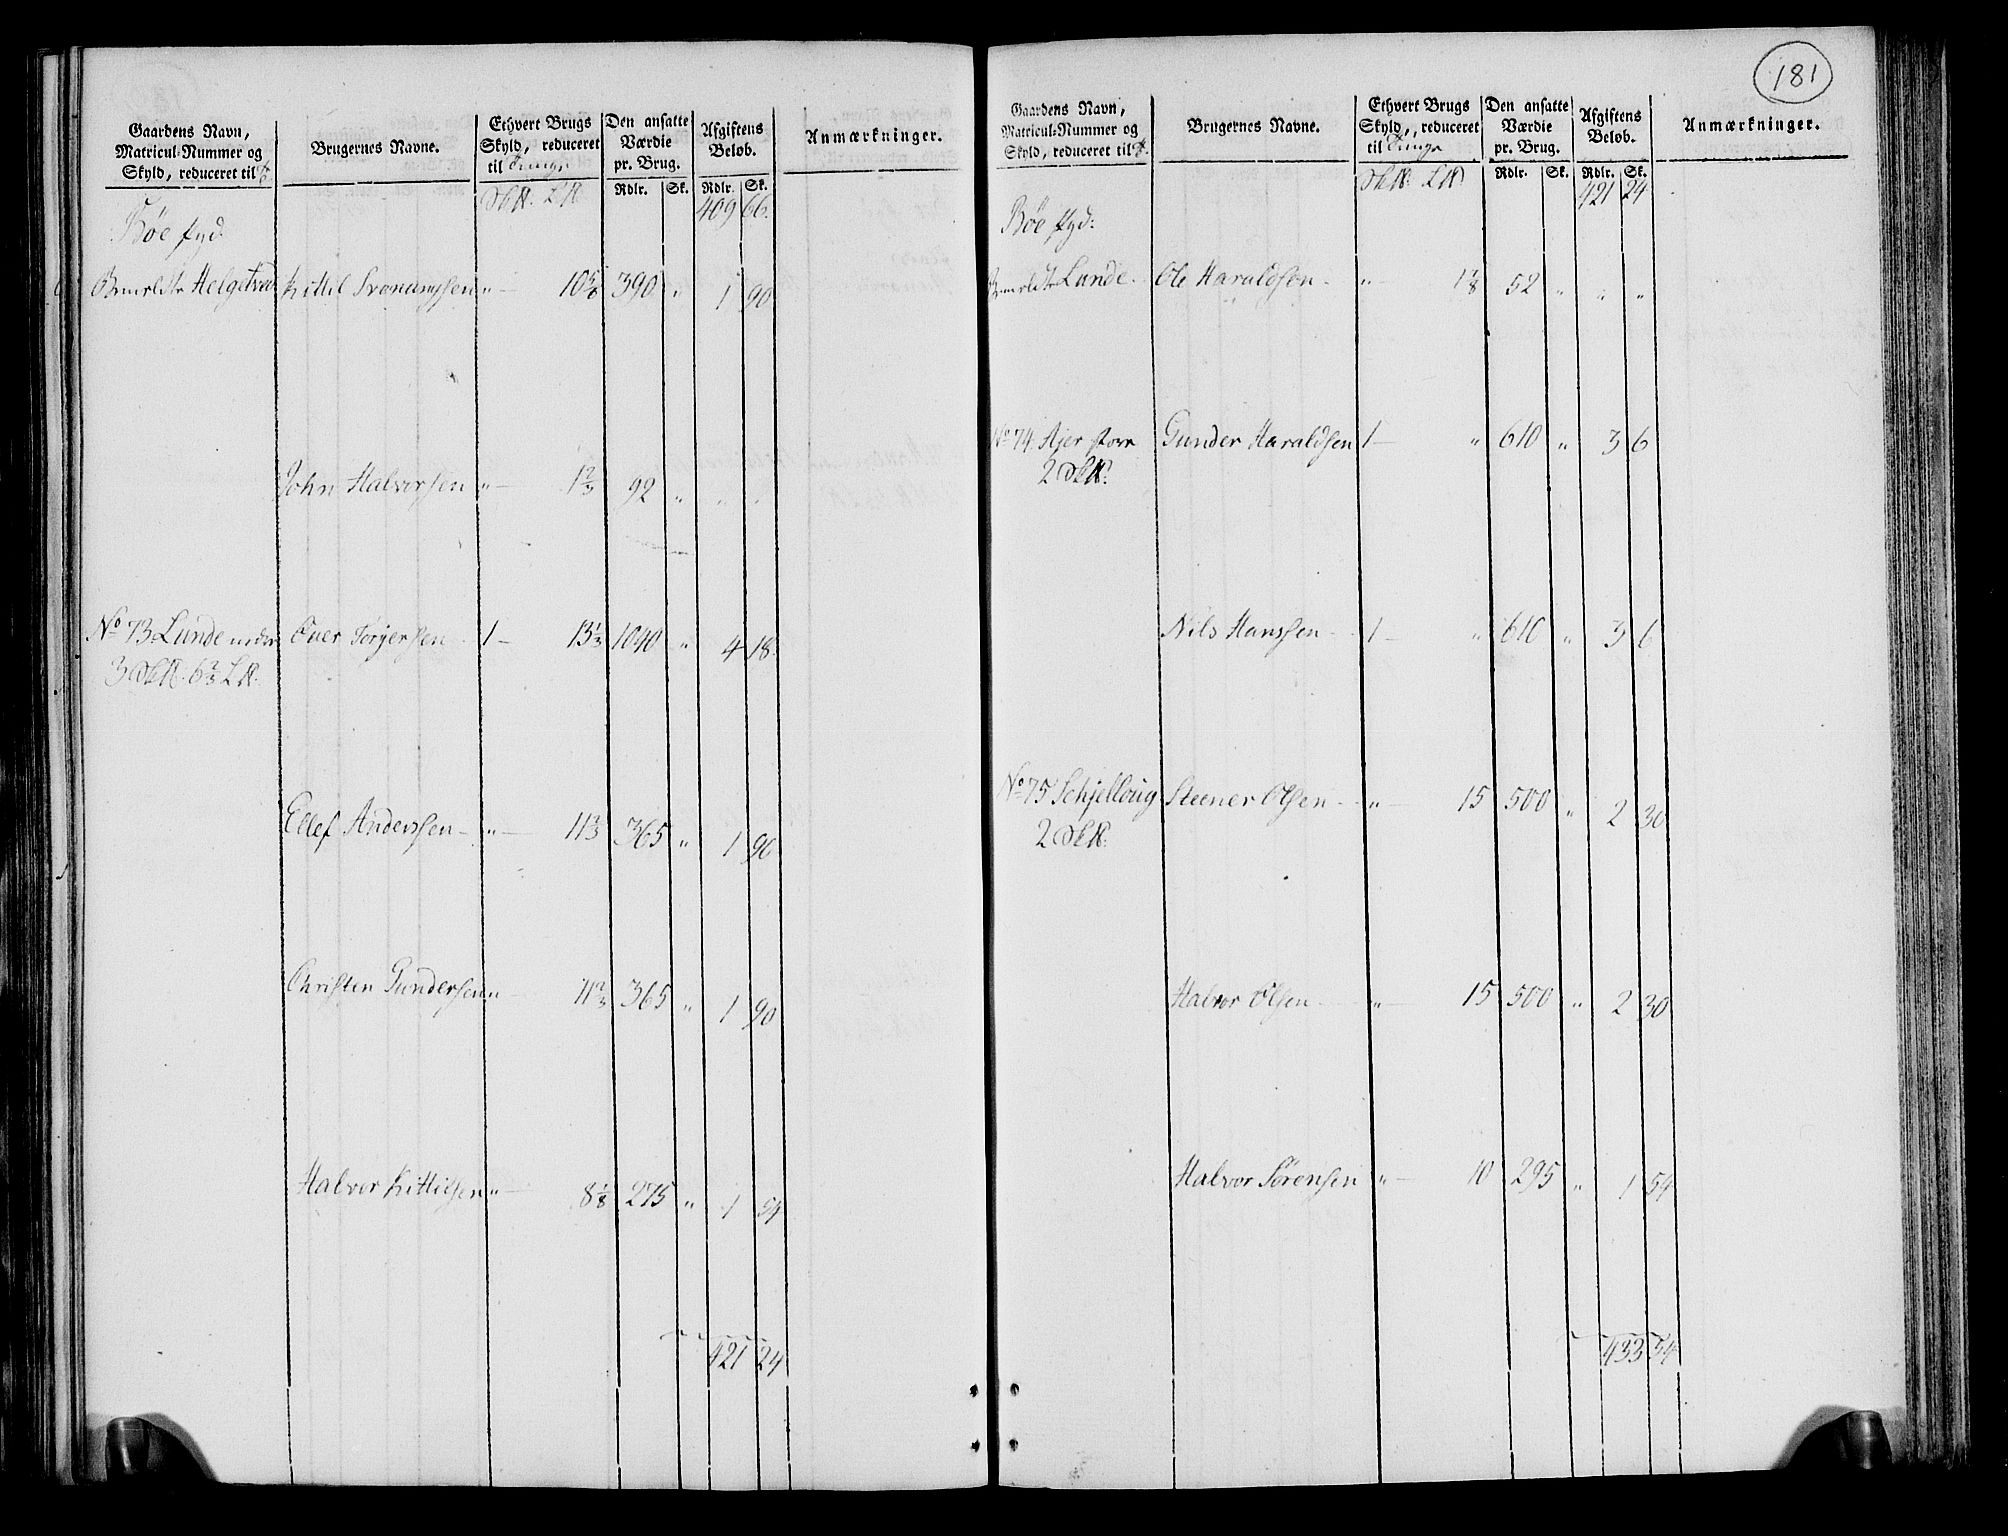 Gaardens Navn,
Matricul-Nummer og
Skyld, reduceret til
Brugernes Navne.
Ethvert Brugs
Skyld, reduceret
til Tunge
Den ansatte
Værdie
pr. Brug.
Afgiftens
Beløb.
Anmærkninger.
Rdlr. Sk. Rdlr. Sk.
409 66.
Bøe
Helgetved Kittil 10 5/6 390 " 1 90
John Halvorsen " 1 2/3 92 " " "
No 73 Lunde Torjersen 1 — 13 1/3 1040 " 4 18.
3 6 2/3
Ellef Anderssen — " — 11 2/3 365 " 1 90
Christen Gundersen " 11 2/3 365 " 1 90
Halvor Kittilsen " 8 1/8 275 " 1 54
421 24
181
Gaardens Navn,
Matricul-Nummer og
Skyld, reduceret til
Brugernes Navne.
Ethvert Brugs
Skyld, reduceret
til Tunge
Den ansatte
Værdie
pr. Brug.
Afgiftens
Beløb.
Anmærkninger.
Rdlr. Sk. Rdlr. Sk.
421 24
Bøe
Lunde Ole Haraldsen " 1 1/8 52 " " "
No 74 Gunder Haraldsen 1 — " 610 " 3 6
2
Nils Hanssen 1 — " 610 " 3 6
No 75 Schjelloug Steener Olsen " 15 500 " 2 30
2
Halvor Olsen " 15 500 " 2 30
Halvor Sørensen " 10 295 " 1 54
433 54